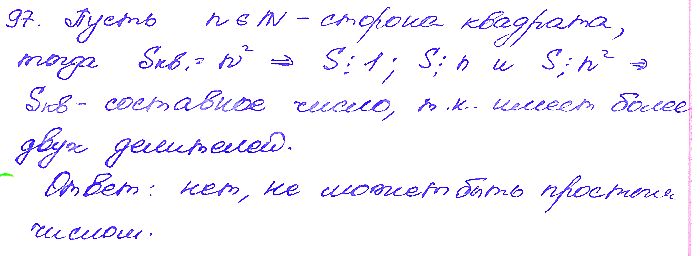 97. Пусть n ∈ N – сторона квадрата,
тогда Sкв. = n² ⇒ S⋮1; S⋮n и S⋮n² ⇒
Sкв – составное число, т.к. имеет более
двух делителей.
Ответ: нет, не может быть простым
числом.